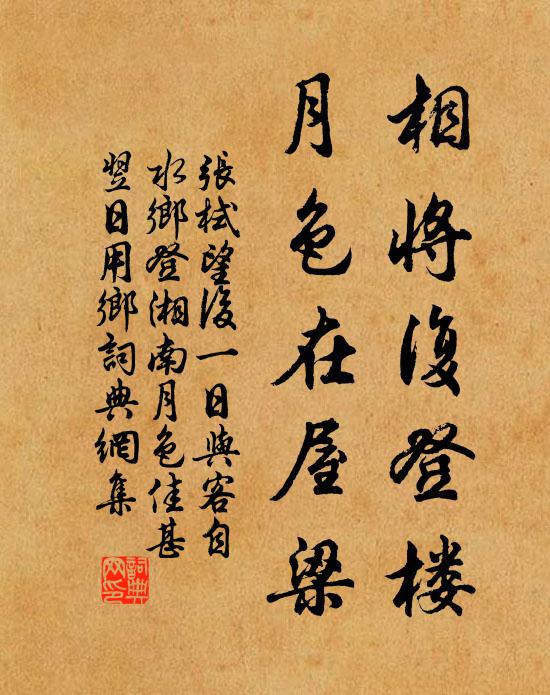 相将復登楼
月色在屋梁
張栻望後一日與客自
水鄉登湘南月色佳甚
翌日用鄉詞典網集
詞典
网印